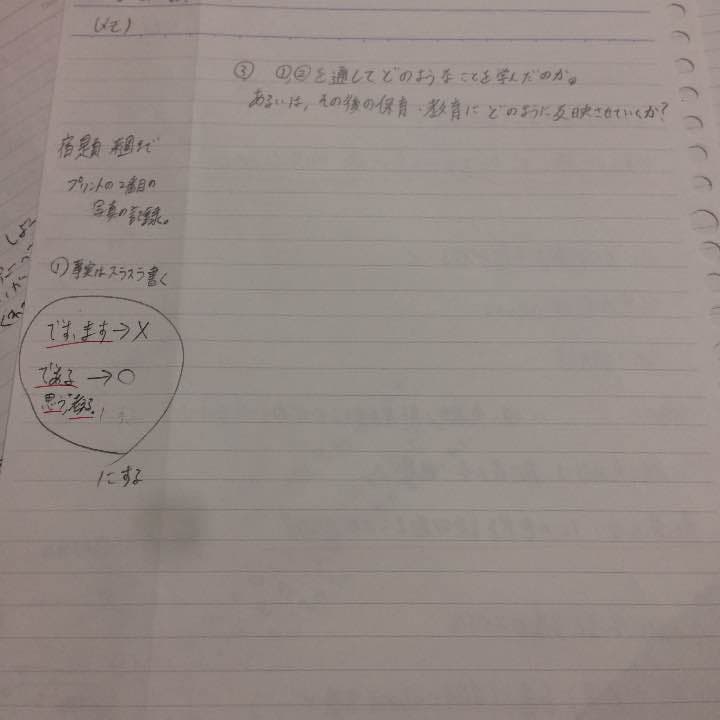 (メモ)
③ ①,②を通してどのようなことを学んだのか。
あるいは、その後の保育・教育にどのように反映させていくか?
宿題 来週まで
プリントの2番目の
写真の記録。
① 事実はスラスラ書く
です、ます→×
である→○
思う、考える。
にする